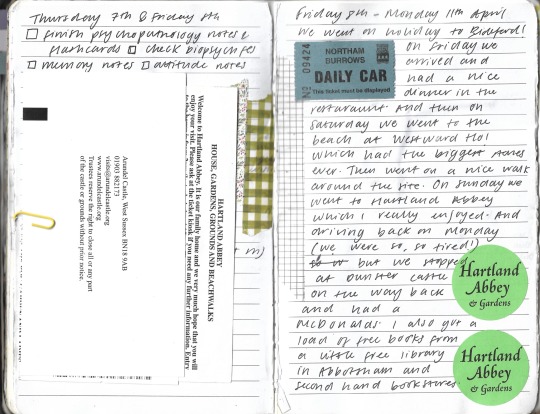 Thursday 7th & Friday 8th
finish psychopathology notes &
flashcards check biopsych
memory notes attitude notes
Arundel Castle, West Sussex BN18 9AB
01903 882173
visits@arundelcastle.org
www.arundelcastle.org
Trustees reserve the right to close all or any part
of the castle or grounds without prior notice.
HARTLAND ABBEY
HOUSE, GARDENS, GROUNDS AND BEACHWALKS
Welcome to Hartland Abbey. It is our family home and we very much hope that you will
enjoy your visit. Please ask at the ticket kiosk if you need any further information. Entry
Friday 8th - Monday 11th April
We went on holiday to Bideford!
on Friday we
arrived and
had a nice
dinner in the
restaraunt. And then on
Saturday we went to the
beach at Westward Ho!
which had the biggest
ever. Then went on a nice walk
around the site. On Sunday we
went to Hartland Abbey
which I really enjoyed. And
driving back on Monday
(we were so, so tired!)
but we stopped
at Dunster castle
on the way back
and had a
McDonalds. I also got a
load of free books from
a little free library
in Abbotsham and
second hand bookstores.
NORTHAM
BURROWS
DAILY CAR
This ticket must be displayed
No 09424
Hartland
Abbey
& Gardens
Hartland
Abbey
& Gardens